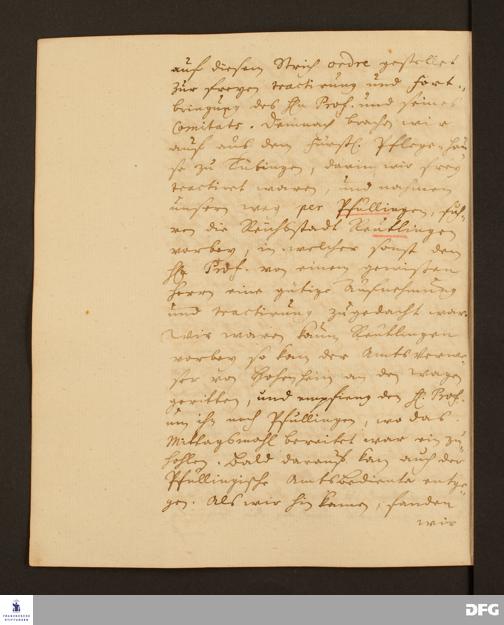 auf diesem Strich ordre gestellet
zur freyen tractirung und fort-
bringung des Hn Prof. und seines
Comitats. Demnach brachen wir
auch aus dem Fürstl. Pflegen hau-
se zu Tübingen, darin wir frey
tractiret waren, und nahmen
unsern weg per Pfullingen, fuh-
ren die Reichsstadt Reutlingen
vorbey, in welcher sonst dem
Hn Prof. von einem gewissen
Herrn eine gütige Aufnehmung
und tractirung zugedacht war.
Wir waren kaum Reutlingen
vorbey so kam der Amts Verwe-
ser von Hohenheim an den wagen
geritten, und empfieng den H. Prof.
um ihn nach Pfullingen, wo das
Mittagsmahl bereitet war ein zu
hohlen. Bald darauf kam auch der
Pfullingische Amtsbediente entge-
gen. Als wir hin kamen, fanden
wir
FRANCKESCHE
STIFTUNGEN
DFG